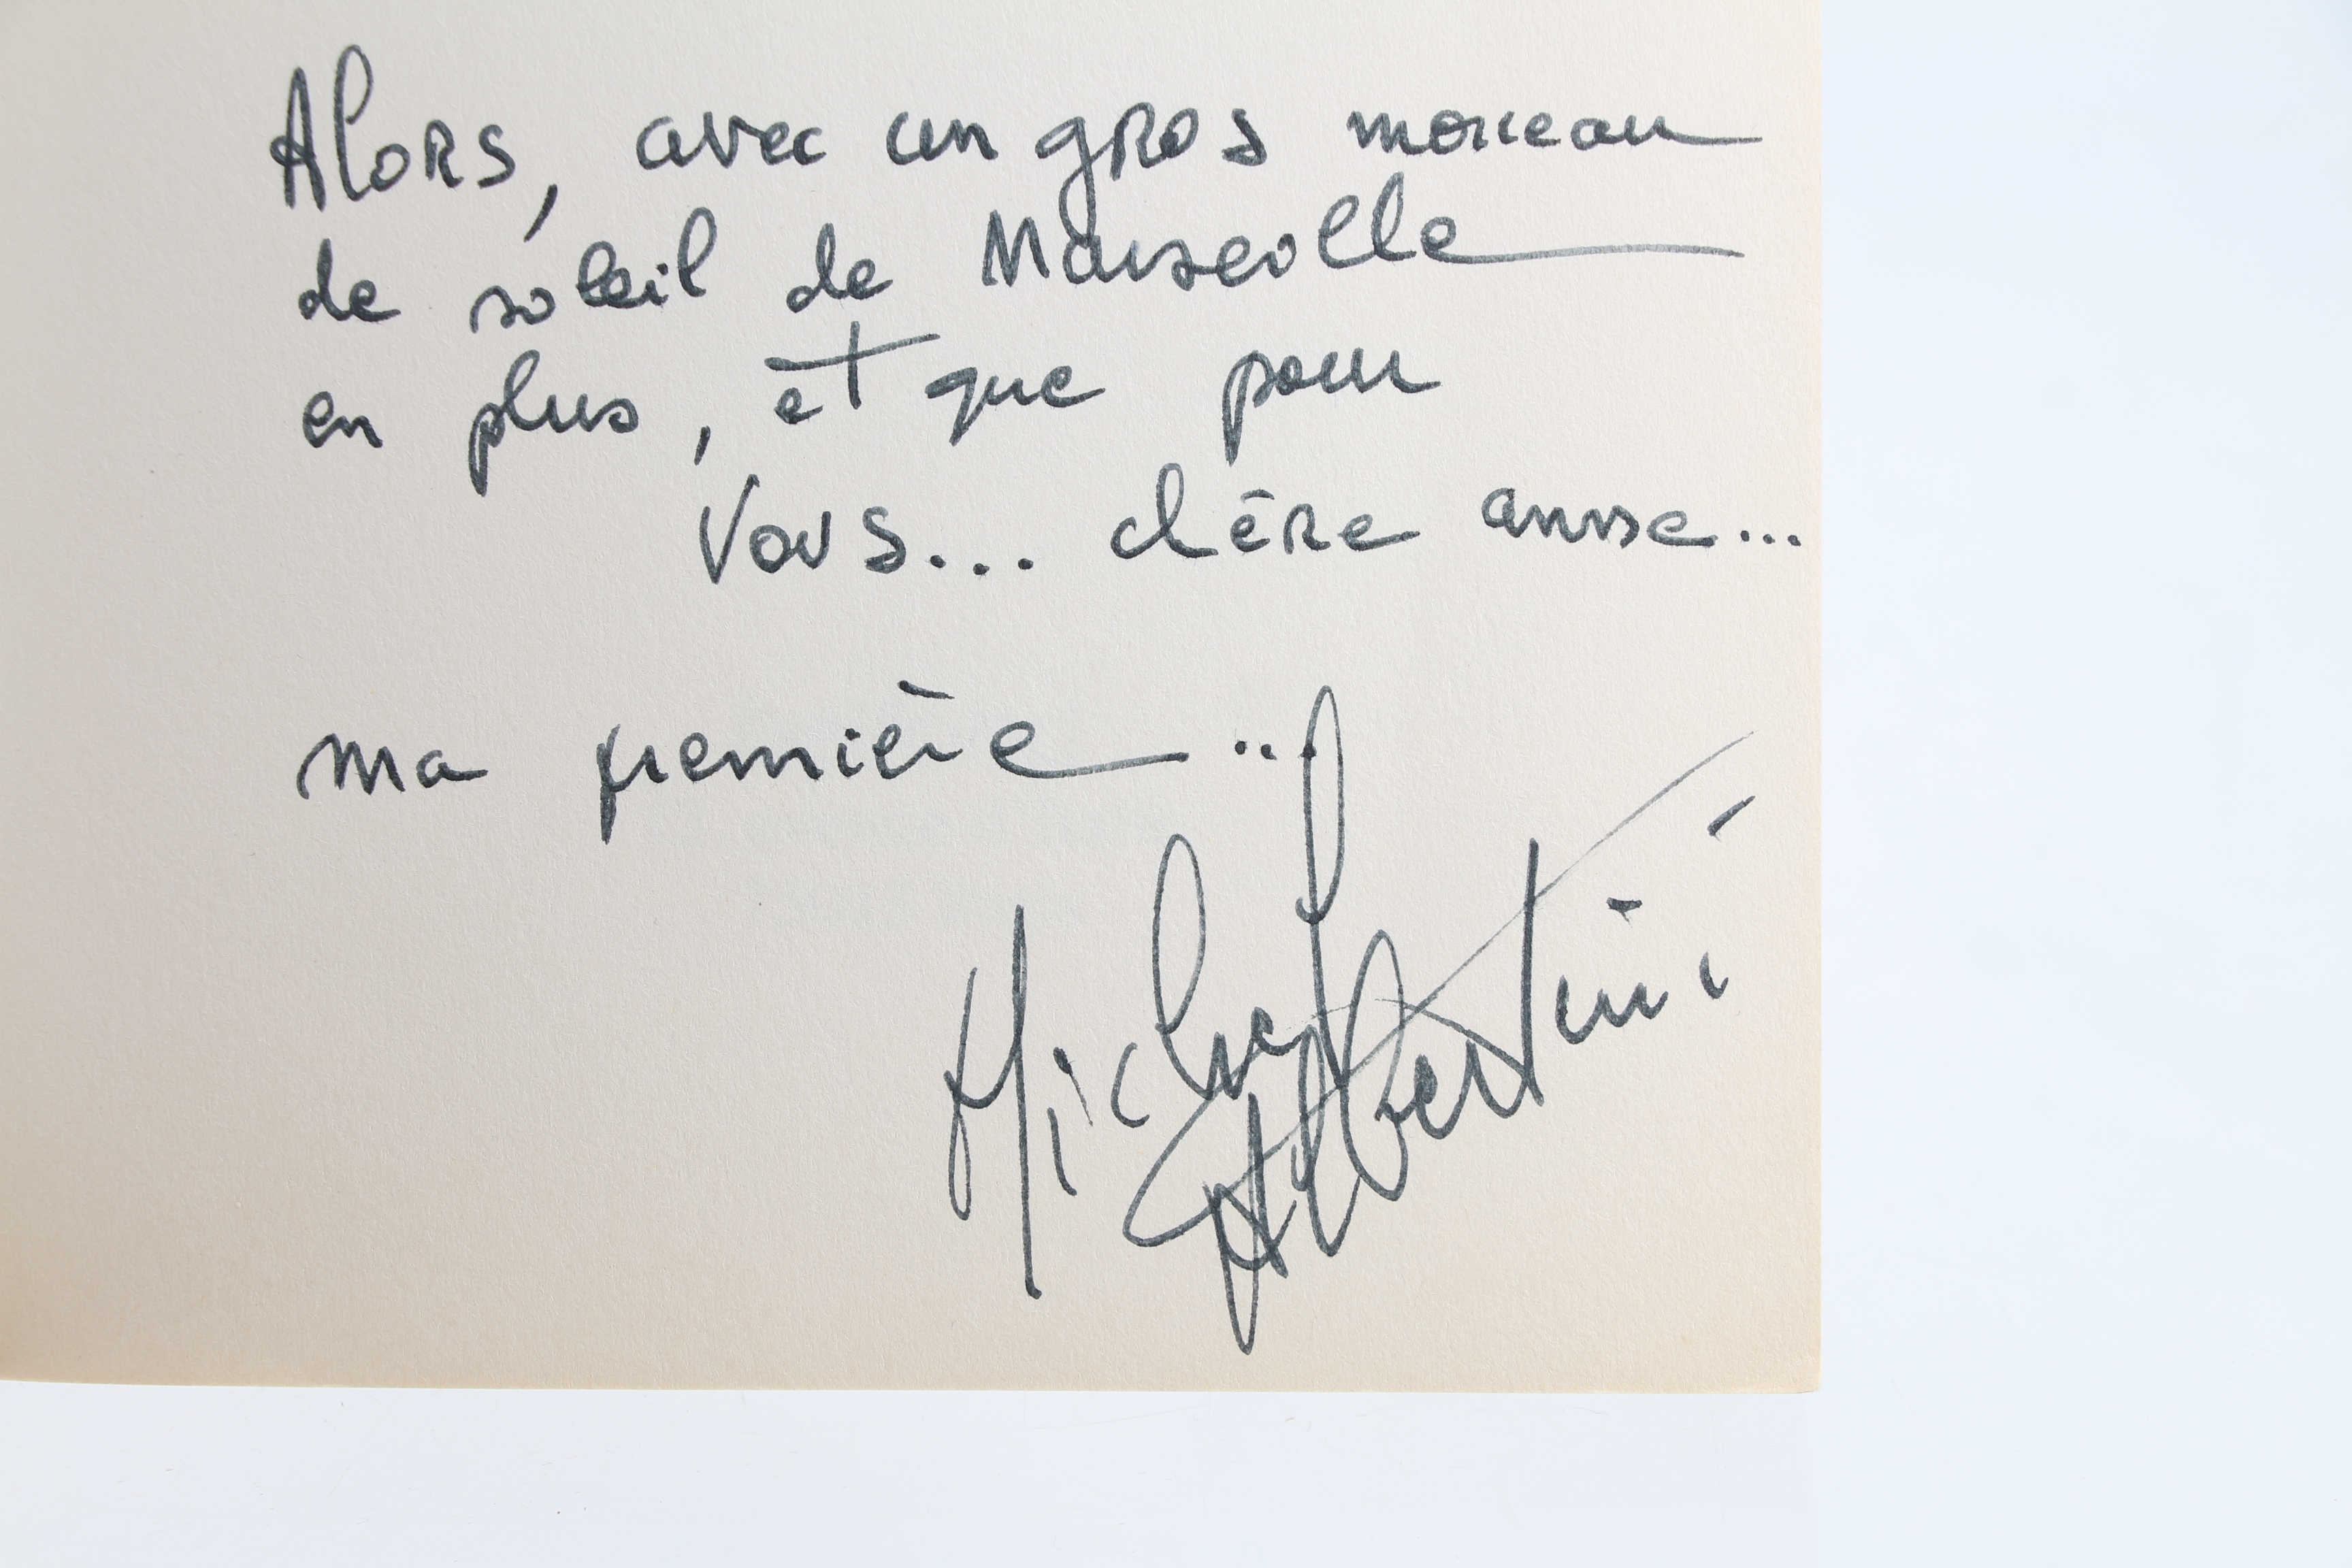 Alors, avec un gros morceau
de soleil de Marseille
en plus, et que pour
Vous... chère amie...
ma première...
Michel
Albertini